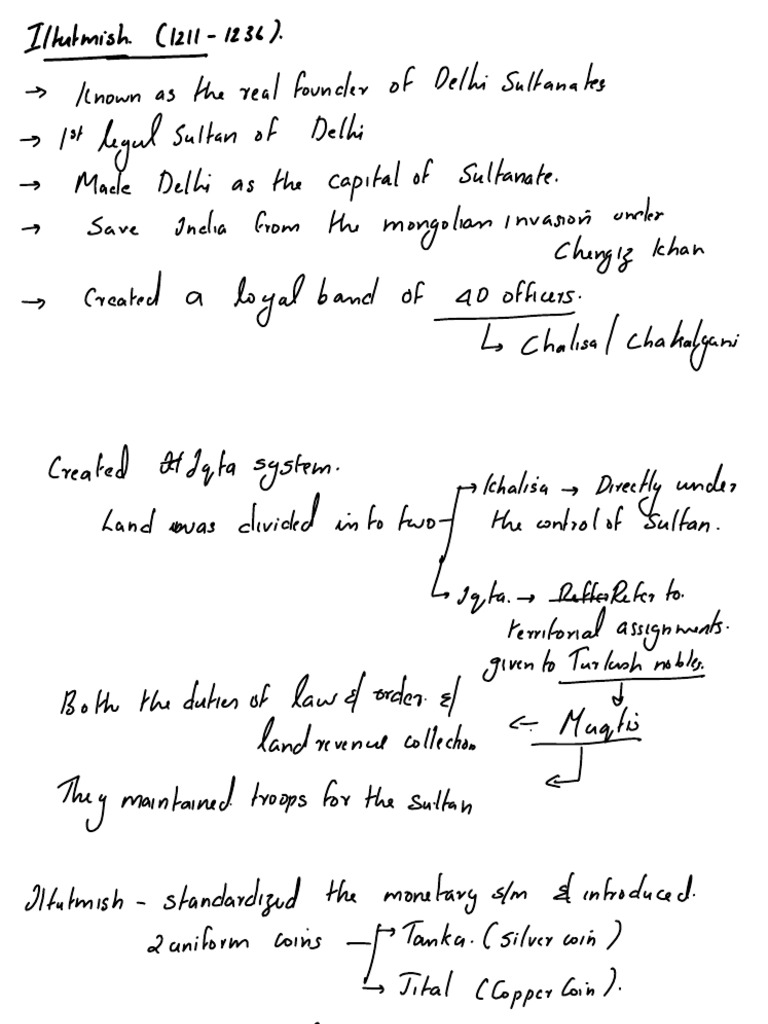 Iltutmish (1211 - 1236).
→ Known as the real founder of Delhi Sultanates
→ 1st legal Sultan of Delhi
→ Made Delhi as the capital of Sultanate.
→ Save India from the mongolian invasion under
Chengiz Khan
→ Created a loyal band of 40 officers.
↳ Chalisa / Chahalgani
Created Iqta system.
Land was divided into two
→ Khalisa → Directly under
the control of Sultan.
↳ Iqta. → Refer to
territorial assignments.
given to Turkish nobles.
↓
Both the duties of law & order. &
land revenue collection
← Muqtis
They maintained troops for the sultan
Iltutmish - standardized the monetary s/m & introduced.
2 uniform coins
→ Tanka. (Silver coin)
→ Jital (Copper Coin).